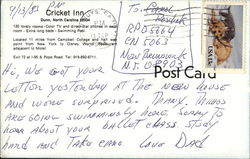 4/13/83
Cricket Inn
Dunn, North Carolina 28334
120 lovely rooms • Color TV and direct-dial phones in each
room • Extra long beds • Swimming Pool
Located 11 miles from Campbell College and half way
point from New York to Disney World. Restaurant
adjacent to Motel
Exit 72 at I-95 & Pope Road
To: Carol
RPO 5064
CN 5063
New Brunswick
N.J. 08903
Post Card
Hi, We got your
letter yesterday at the
and were surprised. Many things
are going swimmingly here. Sorry to
hear about your ballet class. Study
hard and take care. Love Dad